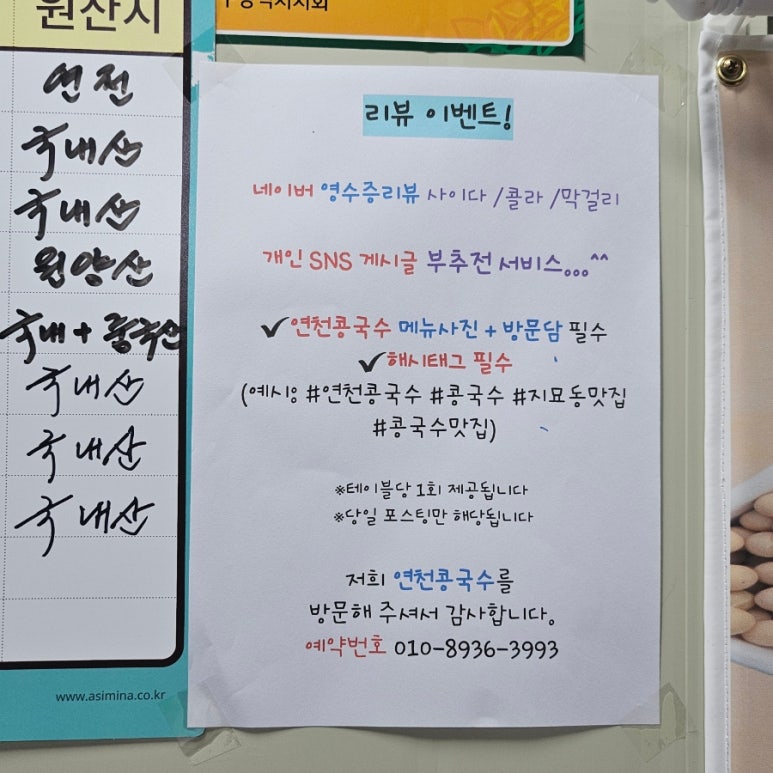 원산지
연천
국내산
국내산
원양산
국내 + 중국산
국내산
국내산
국내산
www.asimina.co.kr
리뷰 이벤트!
네이버 영수증리뷰 사이다 /콜라 /막걸리
개인 SNS 게시글 부추전 서비스...^^
✔연천콩국수 메뉴사진 + 방문담 필수
✔해시태그 필수
(예시: #연천콩국수 #콩국수 #지묘동맛집
#콩국수맛집)
※테이블당 1회 제공됩니다
※당일 포스팅만 해당됩니다
저희 연천콩국수를
방문해 주셔서 감사합니다.
예약번호 010-8936-3993